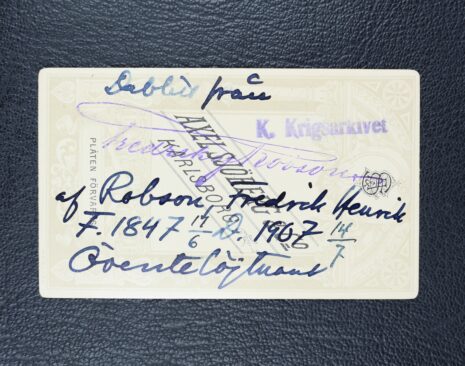 Dublett från
K. Krigsarkivet
Fredrik Robson
AXEL
KARLSBORG
PLÅTEN FÖRVAR
af Robson, Fredrik Henrik
F. 1847 17/6 D. 1907 14/7
Öfverstelöjtnant